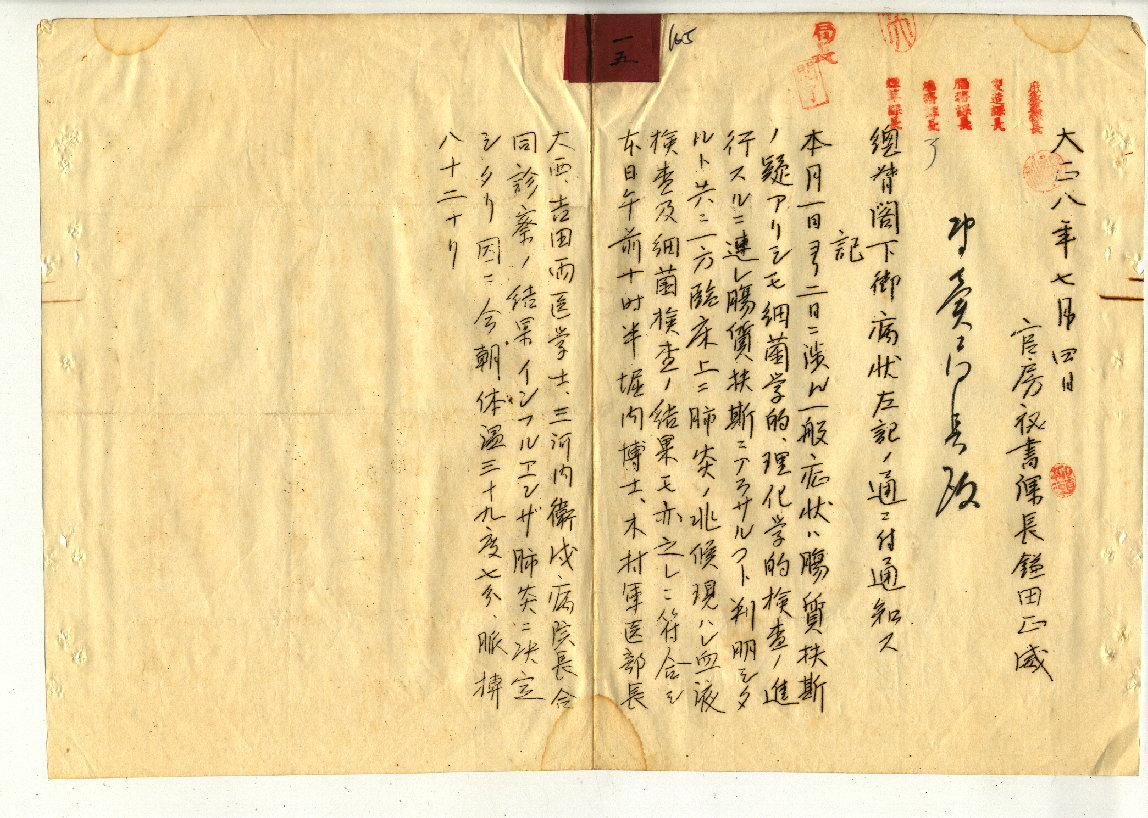 一五
165
局長
大正八年七月四日
官房秘書課長鎌田正威
専賣局長殿
總督閣下御病状左記ノ通ニ付通知ス
記
本月一日ヨリ二日ニ渉ル一般症状ハ腸質扶斯
ノ疑アリシモ細菌学的、理化学的検査ノ進
行スルニ連レ腸質扶斯ニアラサルヿト判明シタ
ルト共ニ一方臨床上ニ肺炎ノ兆候現ハレ血液
検査及細菌検査ノ結果モ亦之レニ符合シ
本日午前十時半堀内博士、木村軍医部長
大西、吉田両医学士、三河内衛戍病院長合
同診察ノ結果インフルエンザ肺炎ニ決定
シタリ因ニ今朝体温三十九度七分、脈搏
八十二ナリ